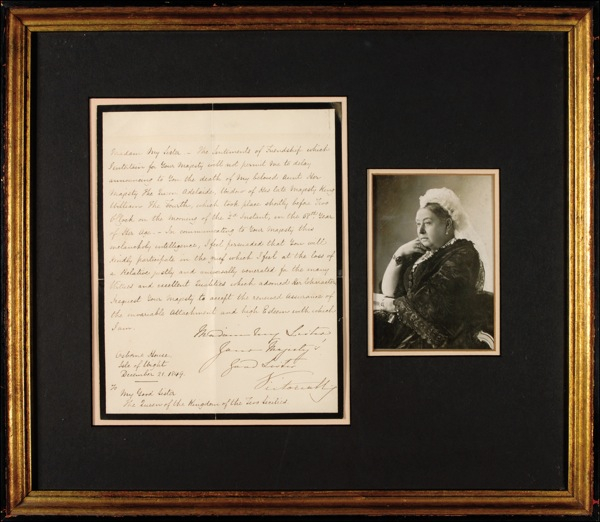 Madam My Sister - The Sentiments of Friendship which
I entertain for Your Majesty will not permit Me to delay
announcing to You the death of My beloved Aunt Her
Majesty The Queen Adelaide Widow of His late Majesty King
William The Fourth, which took place shortly before Two
O'Clock on the Morning of the 2d Instant, in the 58th Year
of Her Age. - In communicating to Your Majesty this
melancholy intelligence, I feel persuaded that You will
kindly participate in the grief which I feel at the loss of
a Relative justly and universally venerated for the many
Virtues and excellent qualities which adorned Her Character
I request Your Majesty to accept the renewed Assurance of
the invariable Attachment and high Esteem with which
I am
Madam My Sister
Your Majesty's
Good Sister
Victoria R
Osborne House
Isle of Wight
December 21. 1849.
To
My Good Sister
The Queen of the Kingdom of the Two Sicilies.